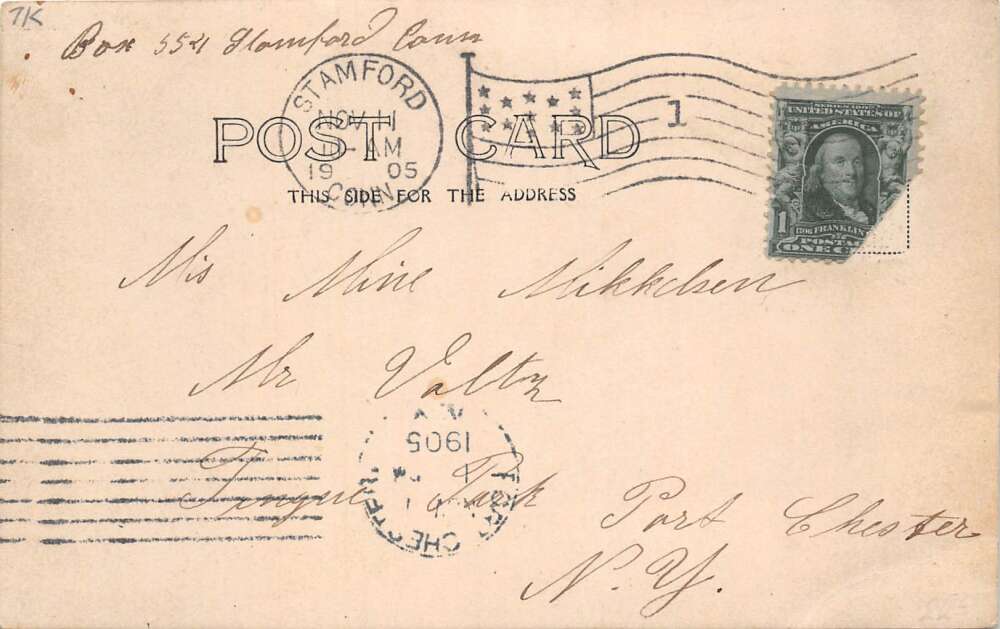 7K
Box 554 Stamford Conn
STAMFORD
NOV 11
11-AM
19 05
CONN.
1
SERIES 1902
UNITED STATES OF
AMERICA
1
1706 FRANKLIN
POSTA
ONE C
POST CARD
THIS SIDE FOR THE ADDRESS
Mis Mine Mikkelsen
Mr Valty
Park
Port Chester
N.Y.
N.Y.
1905
PORT CHESTER